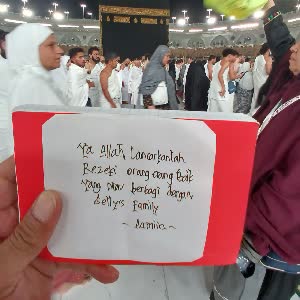 Ya Allah, Lancarkanlah
Rezeki orang orang baik
Yang mau berbagi dengan
Jelly's Family
~ Aamiin ~